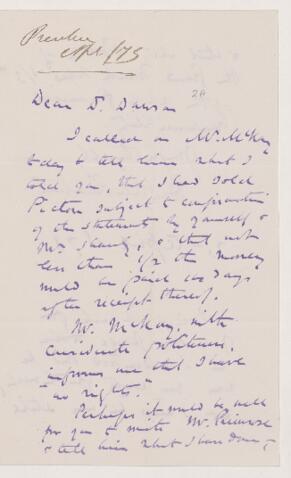 Prentice
Apl /75
24
Dear Dr. Dawson
I called on Mr. McKay
today to tell him what I
told you, that I had sold
Pictou subject to confirmation
of the statements by yourself &
Mr. Shanly, & that not
less than 1/2 the money
would be paid 60 days
after receipt thereof.
Mr. McKay, with
considerate politeness,
informs me that I have
"no rights."
Perhaps it would be well
for you to write Mr. Primrose
& tell him what I have done &